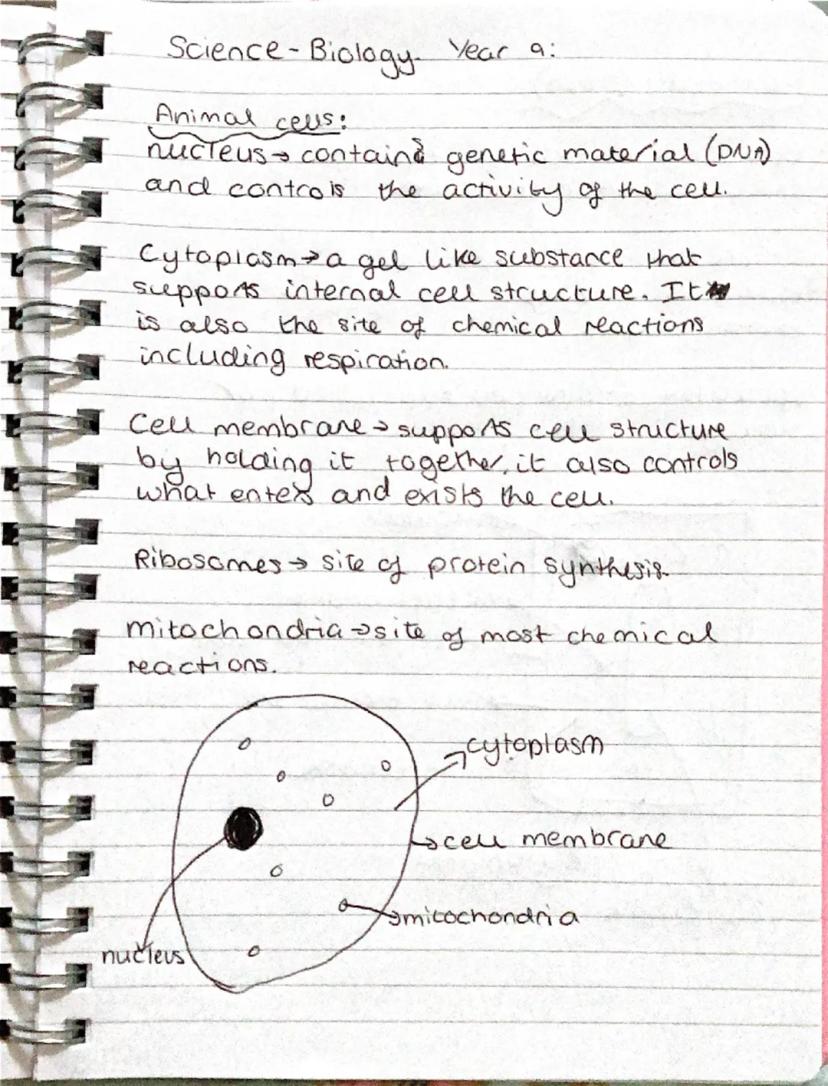 Science - Biology. Year 9:
Animal cells:
nucleus → contains genetic material (DNA)
and controls the activity of the cell.
Cytoplasm → a gel like substance that
supports internal cell structure. It
is also the site of chemical reactions
including respiration.
Cell membrane → supports cell structure
by holding it together, it also controls
what enters and exists the cell.
Ribosomes → site of protein synthesis.
mitochondria → site of most chemical
reactions.
cytoplasm
cell membrane
mitochondria
nucleus